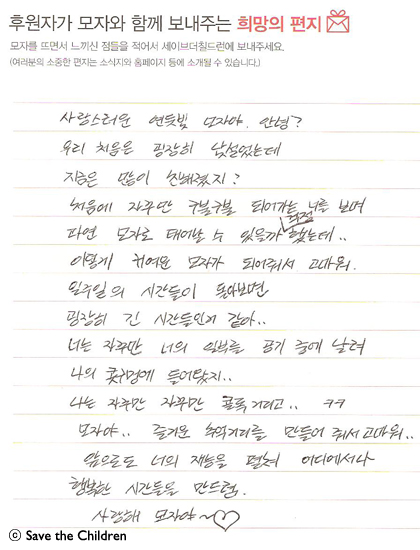 후원자가 모자와 함께 보내주는 희망의 편지
모자를 뜨면서 느끼신 점들을 적어서 세이브더칠드런에 보내주세요.
(여러분의 소중한 편지는 소식지와 홈페이지 등에 소개될 수 있습니다.)
사랑스러운 연둣빛 모자야. 안녕?
우리 처음은 굉장히 낯설었는데
지금은 많이 친해졌지?
처음에 자꾸만 구불구불 되어가는 너를 보며
과연 모자로 태어날 수 있을까 걱정했는데..
이렇게 귀여운 모자가 되어줘서 고마워.
일주일의 시간들이 돌아보면
굉장히 긴 시간들인거 같아..
너는 자꾸만 너의 일부를 공기 중에 날려
나의 콧구멍에 들어왔지..
나는 자꾸만 자꾸만 콜록거리고.. ㅋㅋ
모자야.. 즐거운 추억거리를 만들어 줘서 고마워..
앞으로도 너의 재능을 펼쳐 어디에서나
행복한 시간들을 만드렴.
사랑해 모자야~♡
ⓒ Save the Children